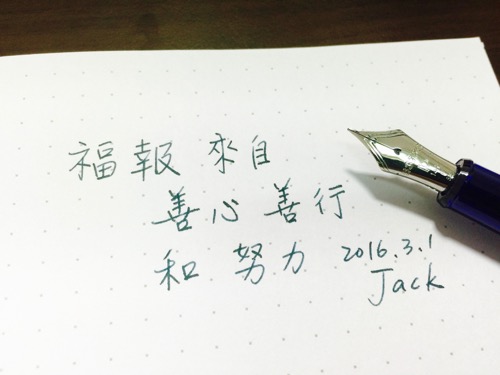 福報來自
善心善行
和努力 2016.3.1
Jack